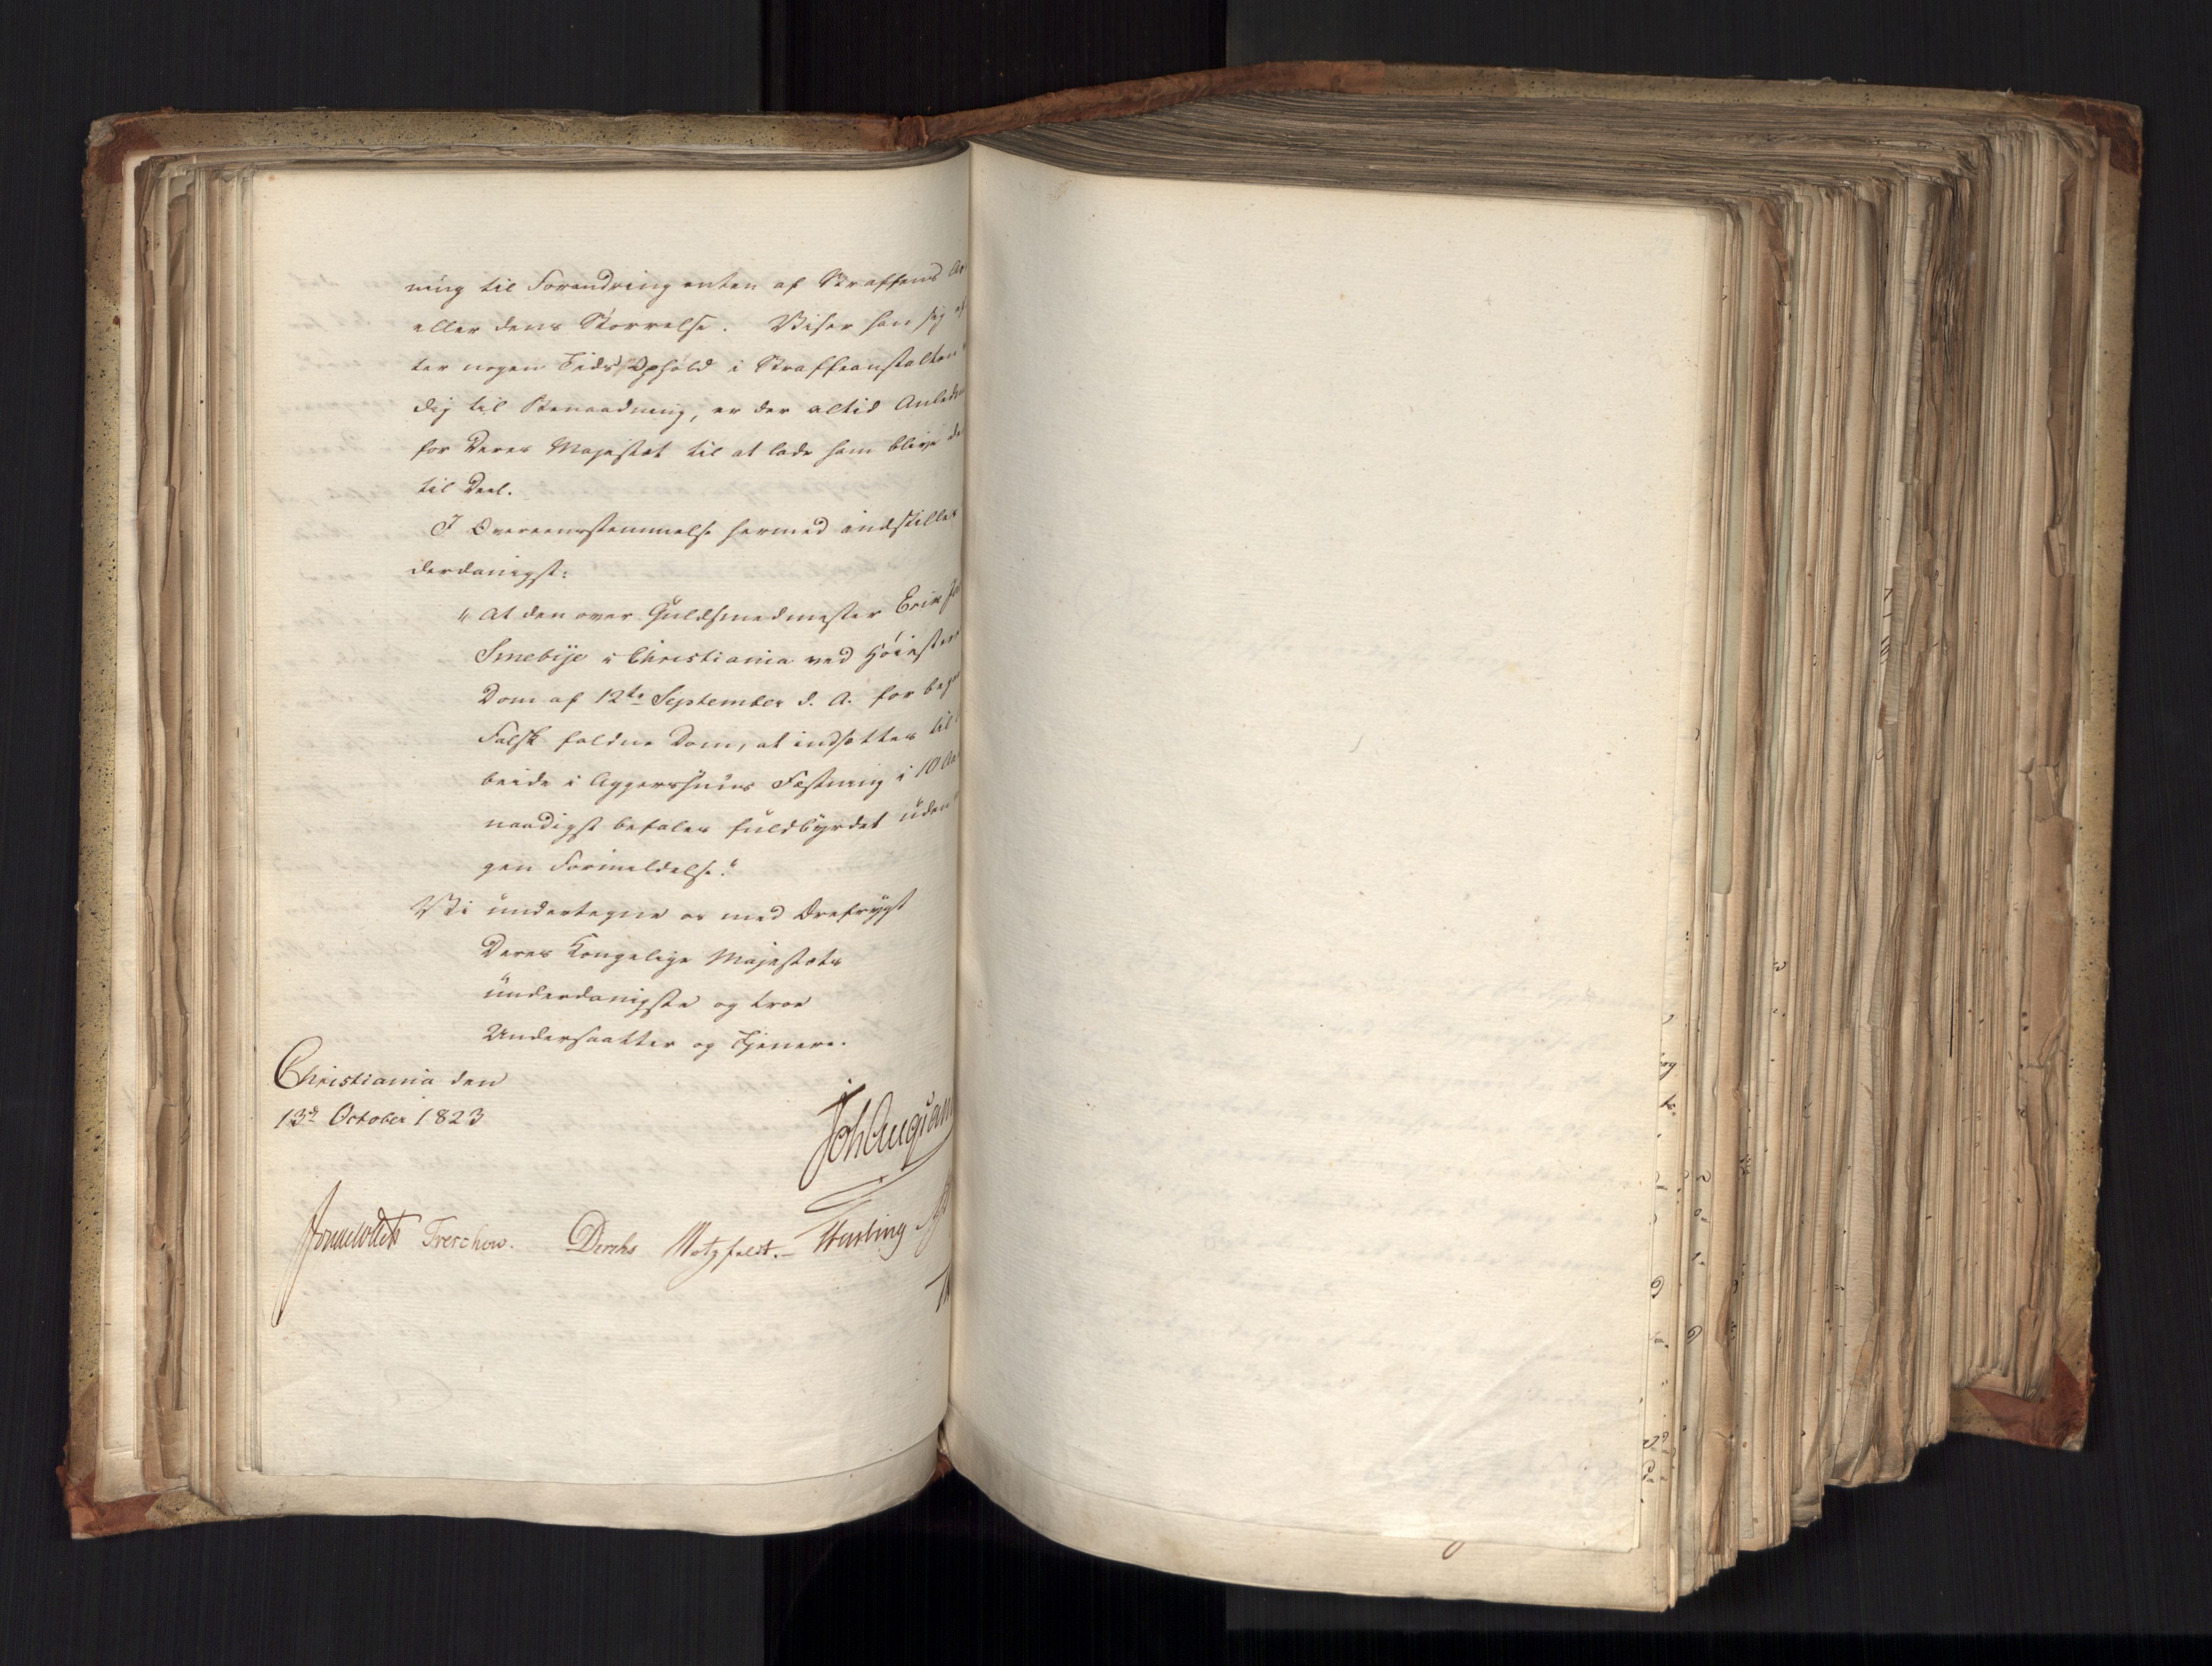 ning til Forandring enten af Straffens Ar
eller dens Størrelse. Viser han sig ef
ter nogen Tids Ophold i Straffeanstalten
dig til Benaadning, er der altid Anledn
for Deres Majestæt til at lade ham blive de
til Deel.
I Overeensstemmelse hermed indstilles
derdanigst:
"At den over Guldsmedmester Erik Ja
Smebye i Christiania ved Høieste
Dom af 12te September d. A. for beg
Falsk faldne Dom, at indsættes til
beide i Aggershuus Fæstning i 10 Aa
naadigst befales fuldbyrdet uden
gen Formeldelse."
Vi undertegne os med Ærefrygt
Deres Kongelige Majestæts
underdanigste og troe
Undersaatter og Tjenere.
Christiania den
13de October 1823
Treschow. Diriks Motzfeldt.